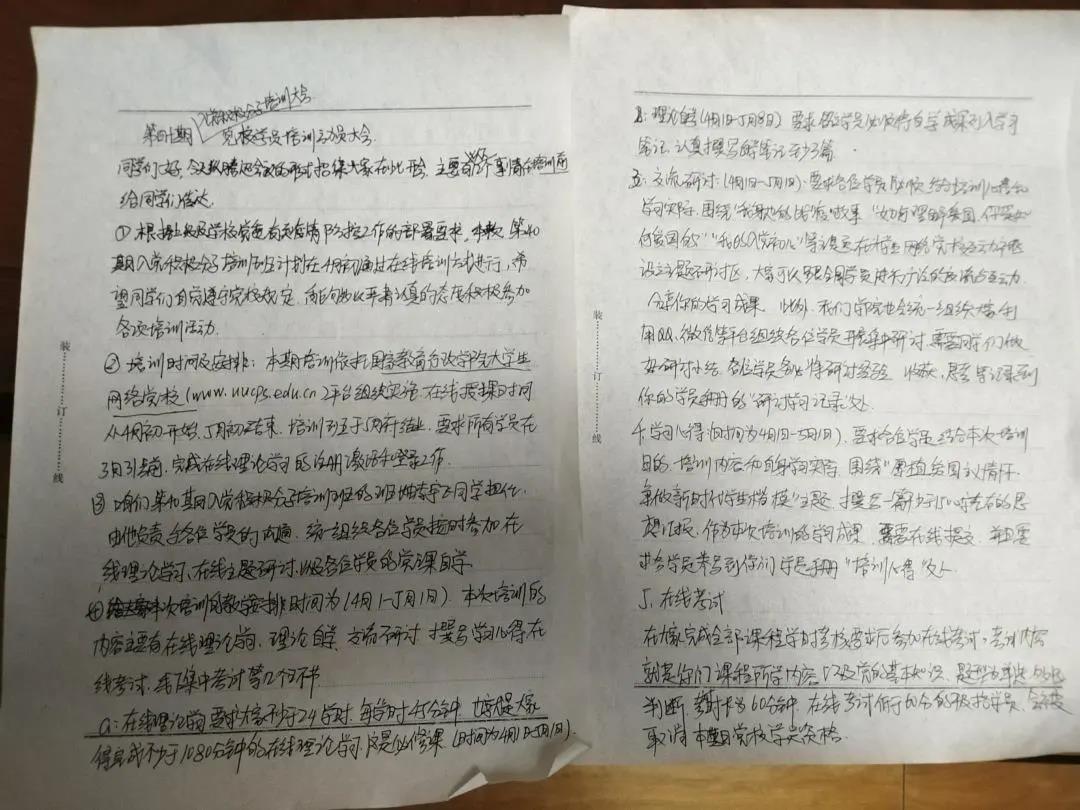 入党积极分子培训大会
第四十期 党校学员培训动员大会
同学们好,今天以腾讯会议的形式把大家在此开会,主要有几个事情在培训前
给同学们传达
① 根据上级及学校党委有关疫情防控工作的部署要求,本次第40
期入党积极分子培训班计划在4月初通过在线培训方式进行,希
望同学们自觉遵守党校规定,认真的态度积极参加
各次培训活动.
② 培训时间及安排:本期培训依托国家教育行政学院大学生
网络党校(www.uucps.edu.cn)平台组织实施.在线授课时间
从4月初开始,5月初结束.培训班于5月结业,要求所有学员在
3月31号前,完成在线理论学习的注册激活和登录工作.
③ 咱们第40期入党积极分子培训班的班 同学担任.
由他负责与各位学员的沟通,统一组织各位学员按时参加在
线理论学习、在线主题研讨,以及各位学员的党课自学
④ 本次培训的教学安排时间为(4月1-5月1日).本次培训的
内容主要有在线理论学习、理论自学、交流研讨、撰写学习心得、在
线考试、线下集中考试等几个环节
a:在线理论学习要求大家不少于24学时,每学时45分钟,也就是大家
得完成不少于1080分钟的在线理论学习,这是必修课(时间为4月1日-5月1日).
B:理论自学(4月1日-5月8日)要求各位学员必须将自学成果列入学习
笔记,认真撰写自学笔记至少3篇.
三:交流研讨:(4月1日-5月1日).要求各位学员 结合培训心得和
学习实际,围绕 故事 "如何理解爱国,你要如
何爱国的""我的入党初心"等议题在大学生网络党校
设立主题研讨区,大家可以跟全国学员进行广泛的交流与互动
分享你的学习成果.此外,我们学院也会统一组织大家利
用QQ、微信等平台组织各位学员开展集中研讨,需要同学们做
好研讨小结,各位学员务必将研讨经验、收获、思考记录到
你的学员手册的"研讨学习记录"处.
4.学习心得(时间为4月1日-5月1日).要求各位学员结合本次培训
目的、培训内容和自身学习实际,围绕"厚植爱国主义情怀
争做新时代学生楷模"主题,撰写一篇 左右的思
想汇报,作为本次培训的学习成果,需要在线提交,并且要
求各学员誊写到你们学员手册"培训心得"处.
5.在线考试
在大家完成全部课程学时考核要求后参加在线考试。考试内容
就是你们课程所学内容以及党的基本知识,题型为单选、多选
判断,考试时长为60分钟.在线考试低于60分的 学员,会被
取消本期党校学员资格.
装
订
线
装
订
线